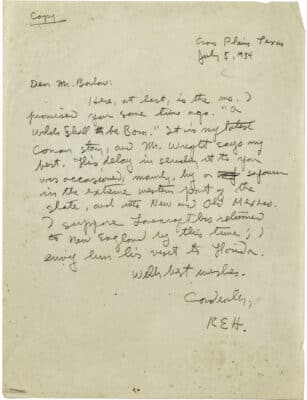 Copy
Cross Plains, Texas
July 5, 1934
Dear Mr. Barlow:
Here, at last, is the ms. I
promised you some time ago. "A
Witch Shall be Born." It is my latest
Conan story, and Mr. Wright says my
best. This delay in sending it to you
was occasioned, mainly, by a sojourn
in the extreme western part of the
state, and into New and Old Mexico.
I suppose Lovecraft has returned
to New England by this time; I
envy him his visit to Florida.
With best wishes.
Cordially,
R.E.H.